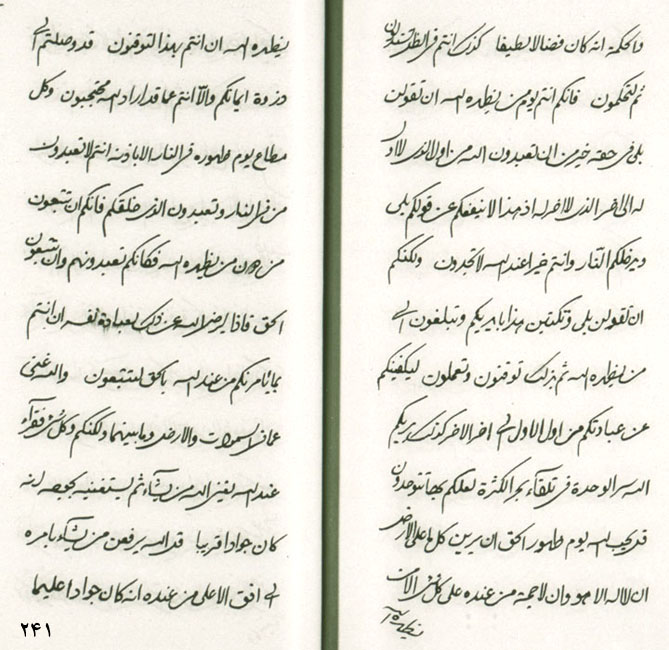 والحكمة انه كان فضالا لطيفا كذلك انتم في الظل تستدلون
ثم لتحكمون فانكم انتم يوم من يظهره الله ان تقولن
بلى في حقه خير من ان تعبدون الله من اول الذى لا اول
له الى اخر الذى لا اخر له اذ هذا لا ينفعكم عن قولكم بلى
ويدخلكم النار وانتم خيرا عند الله لا تجدون ولكنكم
ان تقولن بلى وتكتبن هذا بايديكم وتبلغون الى
من يظهره الله ثم بذلك توقنون وتعملون ليكفينكم
عن عبادتكم من اول الاول الى اخر الاخر كذلك يريكم
الله سر الوحدة في تلقاء بحر الكثرة لعلكم بها تتوحدون
قد يحب الله يوم ظهور الحق ان يرين كل ما على الارض
ان لا اله الا هو وان لا حجة من عنده على كل شئ الا من
يظهره الله
يظهره الله ان انتم بهذا لتوقنون قد وصلتم الى
ذروة ايمانكم والا انتم عما قد اراد الله محتجبون وكل
مطاع يوم ظهوره في النار الا باذنه انتم لا تعبدون
من في النار وتعبدون الذى خلقكم فانكم ان تتبعون
من دون من يظهره الله فكانكم تعبدونهم وان تتبعون
الحق فاذا يرضى الله عن ذلك بعبادة نفسه ان انتم
بما يامرنكم من عند الله بالحق لتتبعون والله غنى
عما في السموات والارض وما بينهما ولكنكم وكل شئ فقراء
عند الله يغنى الله من يشاء ثم يستغنيه بحجة انه
كان جوادا قريبا قد الله يرفعن من يشاء بامره
الى افق الاعلى من عنده انه كان جوادا عليما
٢٤١